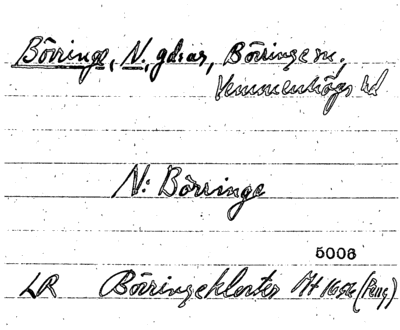 Börringe, N., gdsar, Börringe sn,
Vemmenhögs hd
N: Börringe
5006
LR Börringekloster